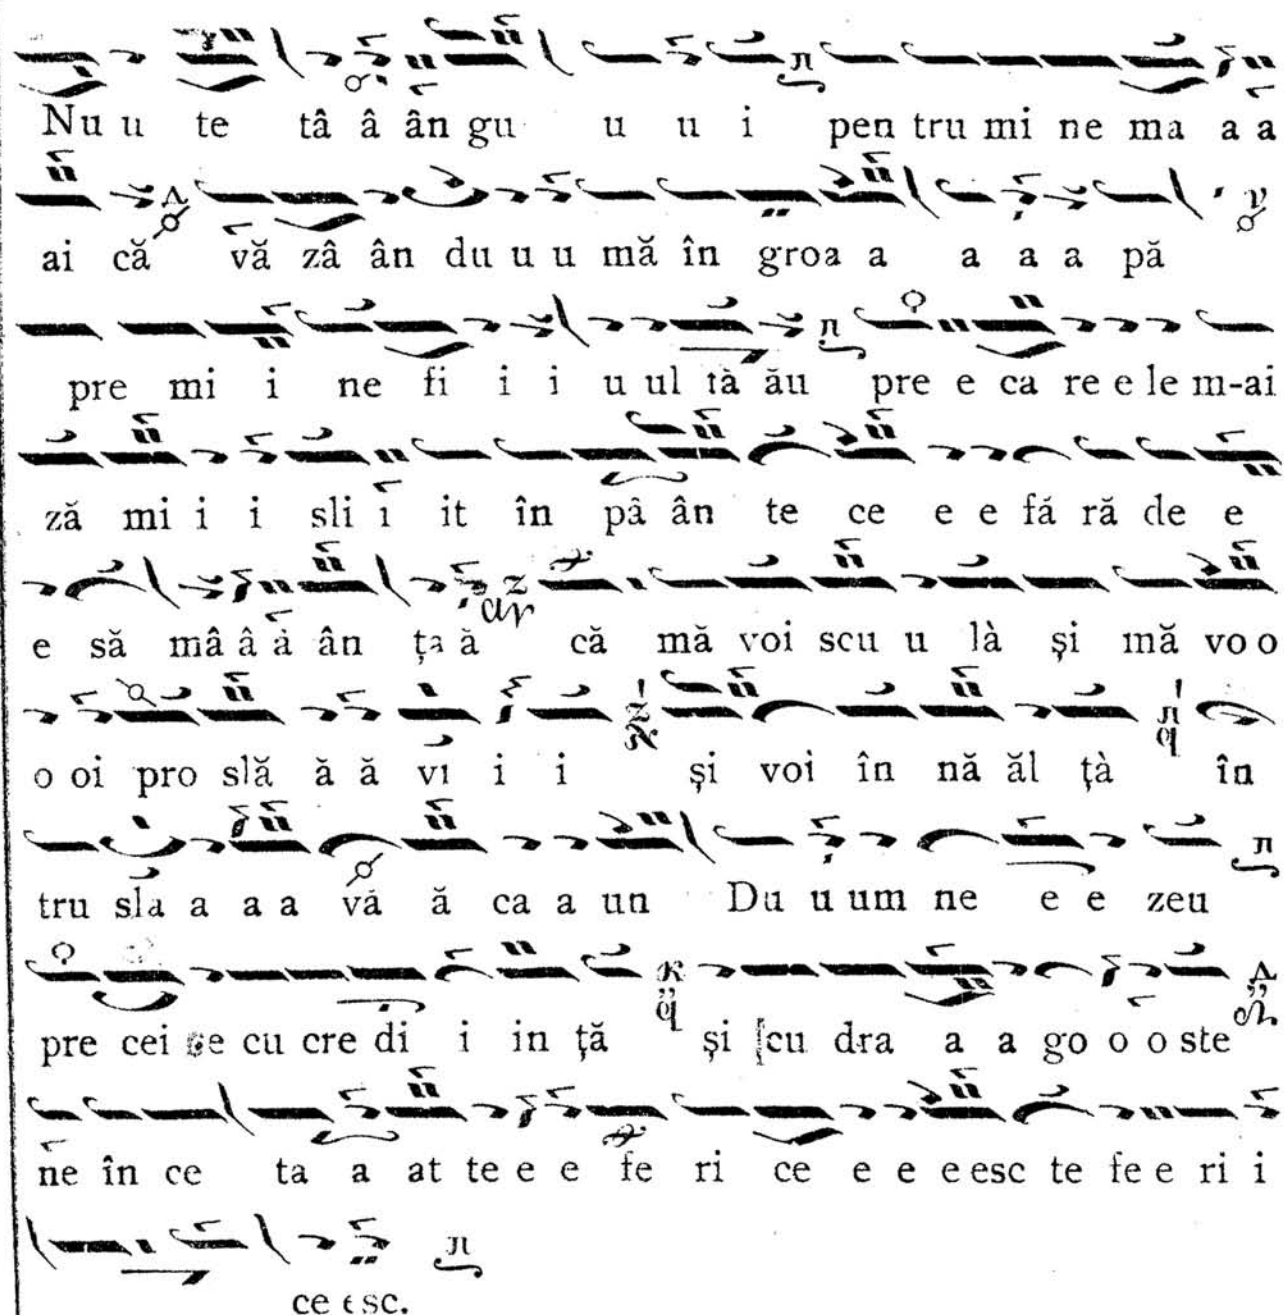 Nu u te tâ â ân gu u u i pen tru mi ne ma a a
ai că vă zâ ân du u u mă în groa a a a a pă
pre mi i ne fi i i u ul tă ău pre e ca re e le m-ai
ză mi i i sli i it în pâ ân te ce e e fă ră de e
e să mâ â â ân ța ă că mă voi scu u là și mă vo o
o oi pro slă ă ă vi i i și voi în nă ăl țà în
tru sla a a a vă ă ca a un Du u um ne e e zeu
pre cei ce cu cre di i in ță și cu dra a a go o o ste
ne în ce ta a at te e e fe ri ce e e e esc te fe e ri i
ce esc.